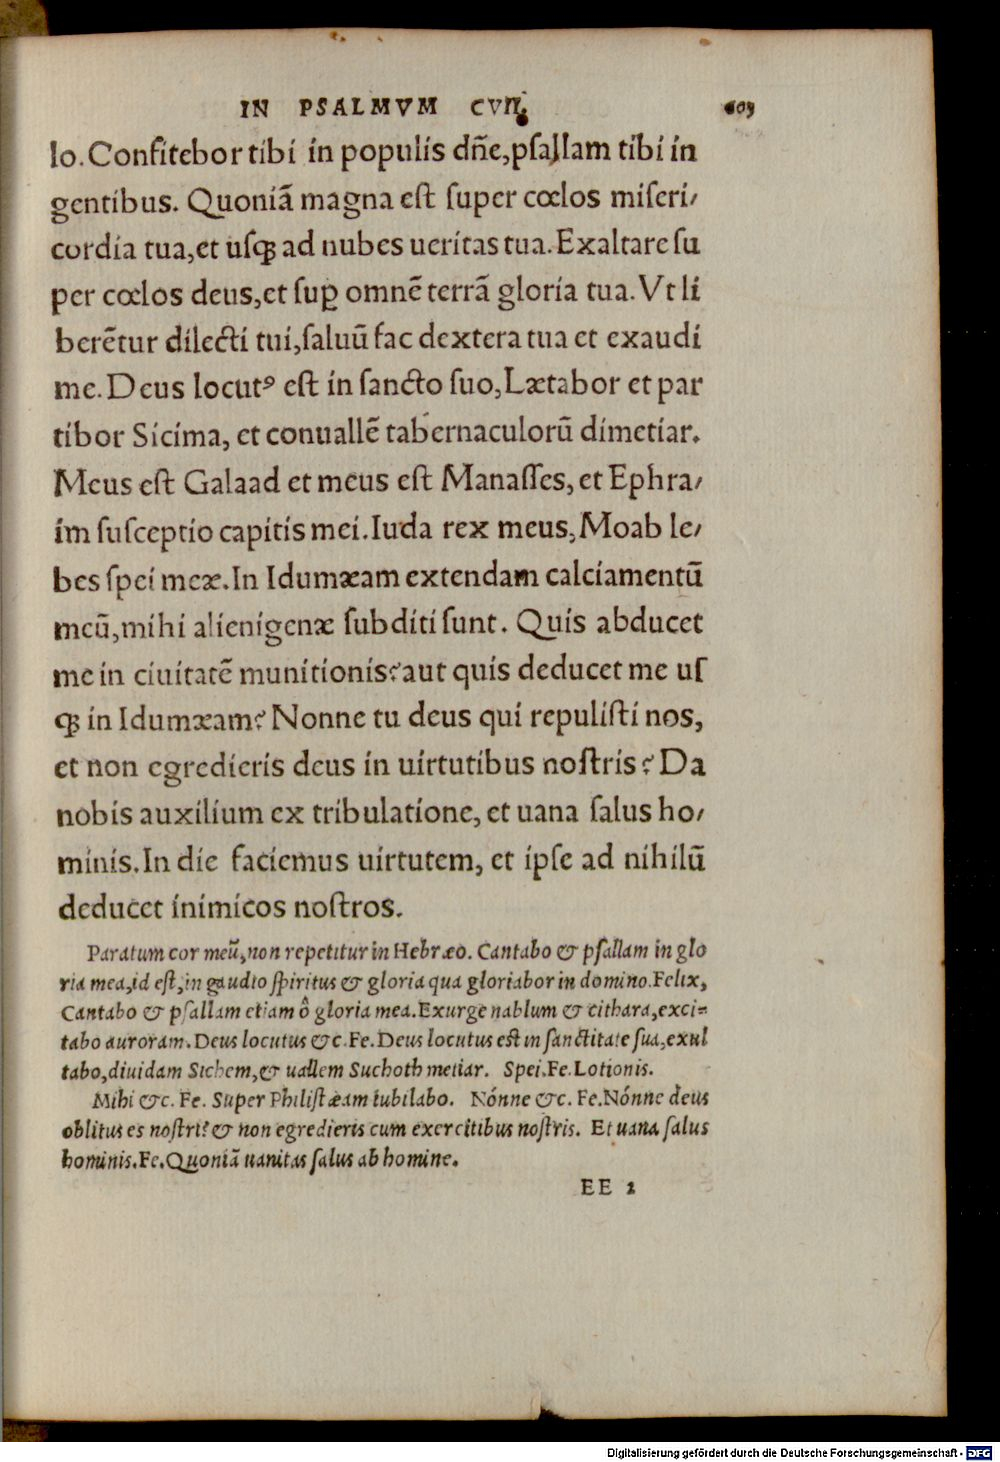 IN PSALMVM CVII. 603
lo. Confitebor tibi in populis dñe, pſallam tibi in
gentibus. Quoniã magna eſt ſuper cœlos miſeri/
cordia tua, et uſꝗ ad nubes ueritas tua. Exaltare ſu
per cœlos deus, et ſuꝑ omnẽ terrã gloria tua. Vt li
berẽtur dilecti tui, ſaluũ fac dextera tua et exaudi
me. Deus locutꝰ eſt in ſancto ſuo, Lætabor et par
tibor Sicima, et conuallẽ tabernaculorũ dimetiar.
Meus eſt Galaad et meus eſt Manaſſes, et Ephra/
im ſuſceptio capitis mei. Iuda rex meus, Moab le/
bes ſpei meæ. In Idumæam extendam calciamentũ
meũ, mihi alienigenæ ſubditi ſunt. Quis abducet
me in ciuitatẽ munitionis? aut quis deducet me uſ
ꝗ in Idumæam? Nonne tu deus qui repuliſti nos,
et non egredieris deus in uirtutibus noſtris? Da
nobis auxilium ex tribulatione, et uana ſalus ho/
minis. In die faciemus uirtutem, et ipſe ad nihilũ
deducet inimicos noſtros.
Paratum cor meũ, non repetitur in Hebræo. Cantabo & pſallam in glo
ria mea, id eſt, in gaudio ſpiritus & gloria qua gloriabor in domino. Felix,
Cantabo & pſallam etiam ô gloria mea. Exurge nablum & cithara, exci-
tabo auroram. Deus locutus &c. Fe. Deus locutus eſt in ſanctitate ſua, exul
tabo, diuidam Sichem, & uallem Suchoth metiar. Spei. Fe. Lotionis.
Mihi &c. Fe. Super Philiſtæam iubilabo. Nónne &c. Fe. Nónne deus
oblitus es noſtri? & non egredieris cum exercitibus noſtris. Et uana ſalus
hominis. Fe. Quoniã uanitas ſalus ab homine.
EE 2
Digitalisierung gefördert durch die Deutsche Forschungsgemeinschaft - DFG